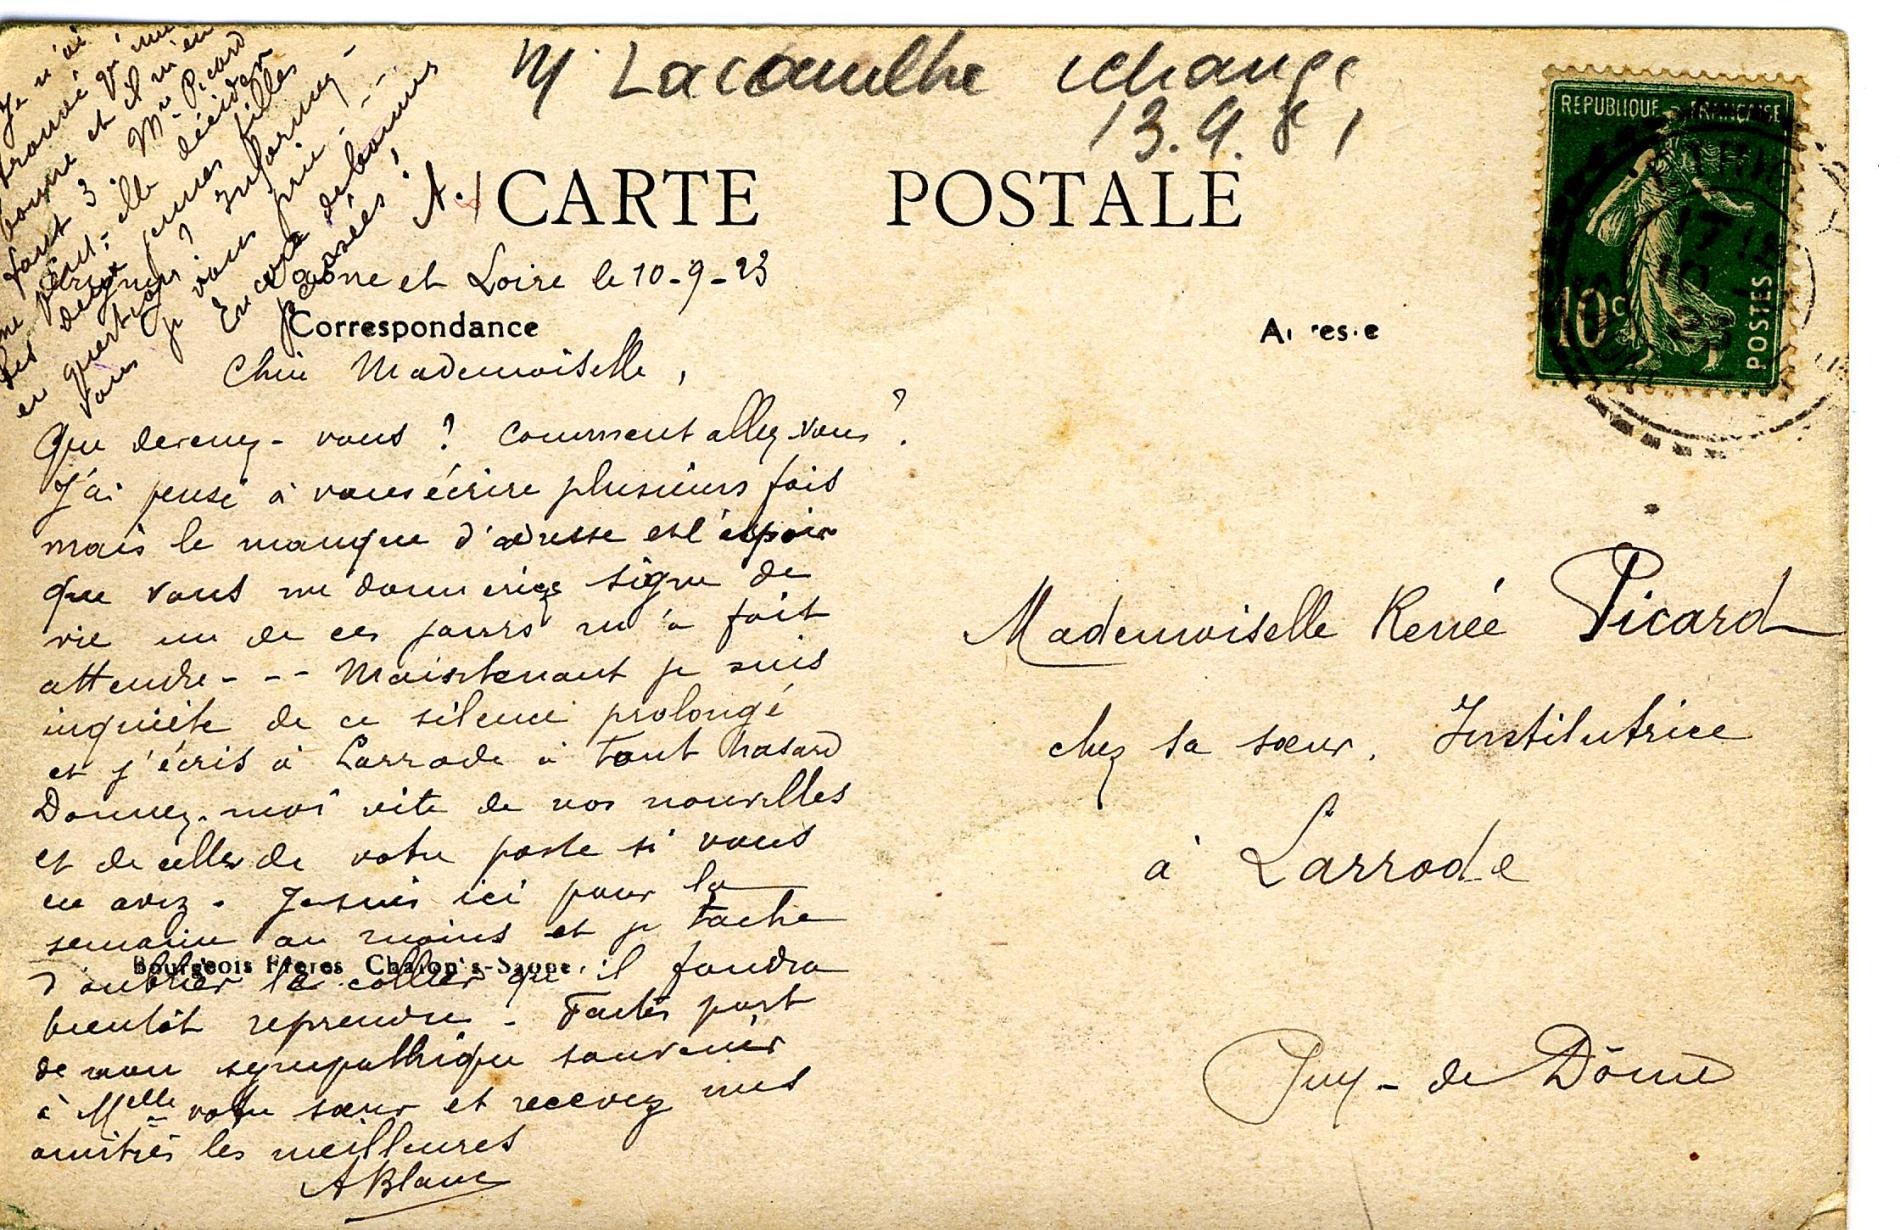 M Lacombe échange
13.9.81
CARTE POSTALE
REPUBLIQUE FRANÇAISE
10c
POSTES
Saône et Loire le 10-9-23
Correspondance
Adresse
Chère Mademoiselle,
Que devenez-vous ? Comment allez-vous ?
J'ai pensé à vous écrire plusieurs fois
mais le manque d'adresse et l'espoir
que vous me donneriez signe de
vie un de ces jours m'a fait
attendre - - - Maintenant je suis
inquiète de ce silence prolongé
et j'écris à Larrode à tout hasard
Donnez-moi vite de vos nouvelles
et de celles de votre poste si vous
en avez. Je suis ici pour la
semaine au moins et je tâche
Bourgeois Frères Chalon s-Saone
d'oublier le collier qu'il faudra
bientôt reprendre - Faites part
de mon sympathique souvenir
à Melle votre sœur et recevez mes
amitiés les meilleures
A Blanc
Je n'ai
trouvé qu'une
bonne et il m'en
faut 3. Mme Picard
ne peut-elle décider
les deux jeunes filles
en question ? Informez-
vous je vous prie - - -
Encore de bonnes
pensées !
A.
Mademoiselle Renée Picard
chez sa sœur, Institutrice
à Larrode
Puy-de Dôme